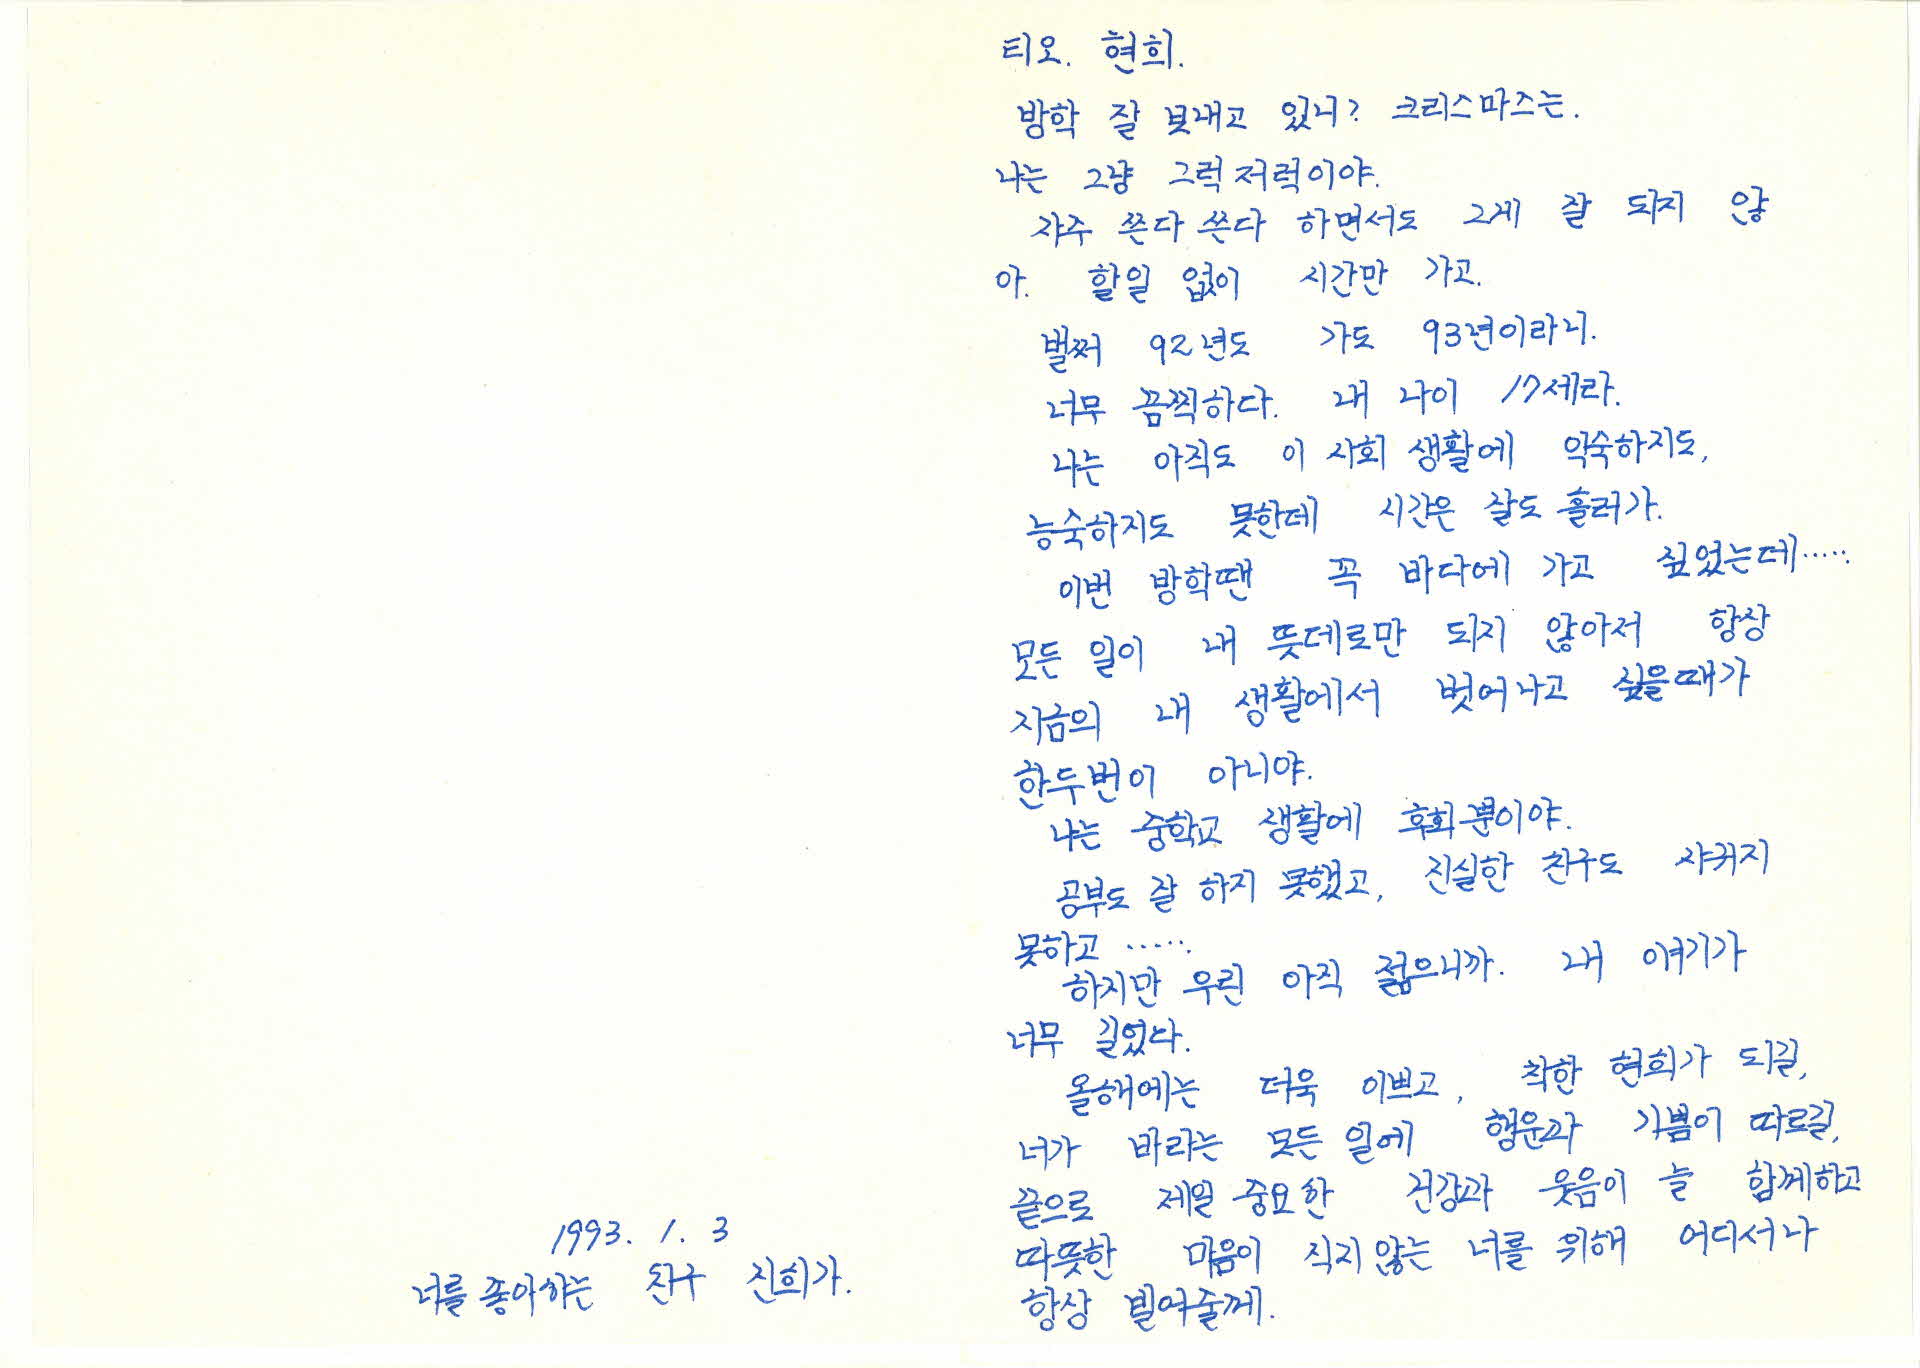 티오. 현희.
방학 잘 보내고 있니? 크리스마스는.
나는 그냥 그럭저럭이야.
자주 쓴다 쓴다 하면서도 그게 잘 되지 않
아. 할일 없이 시간만 가고.
벌써 92년도 가도 93년이라니.
너무 끔찍하다. 내 나이 17세라.
나는 아직도 이 사회 생활에 익숙하지도,
능숙하지도 못한데 시간은 잘도 흘러가.
이번 방학땐 꼭 바다에 가고 싶었는데.....
모든 일이 내 뜻데로만 되지 않아서 항상
지금의 내 생활에서 벗어나고 싶을때가
한두번이 아니야.
나는 중학교 생활에 후회뿐이야.
공부도 잘 하지 못했고, 진실한 친구도 사귀지
못하고 .....
하지만 우린 아직 젊으니까. 내 이야기가
너무 길었다.
올해에는 더욱 이쁘고, 착한 현희가 되길,
너가 바라는 모든 일에 행운과 기쁨이 따르길,
끝으로 제일 중요한 건강과 웃음이 늘 함께하고
따뜻한 마음이 식지않는 너를 위해 어디서나
항상 빌어줄께.
1993. 1. 3
너를 좋아하는 친구 진희가.